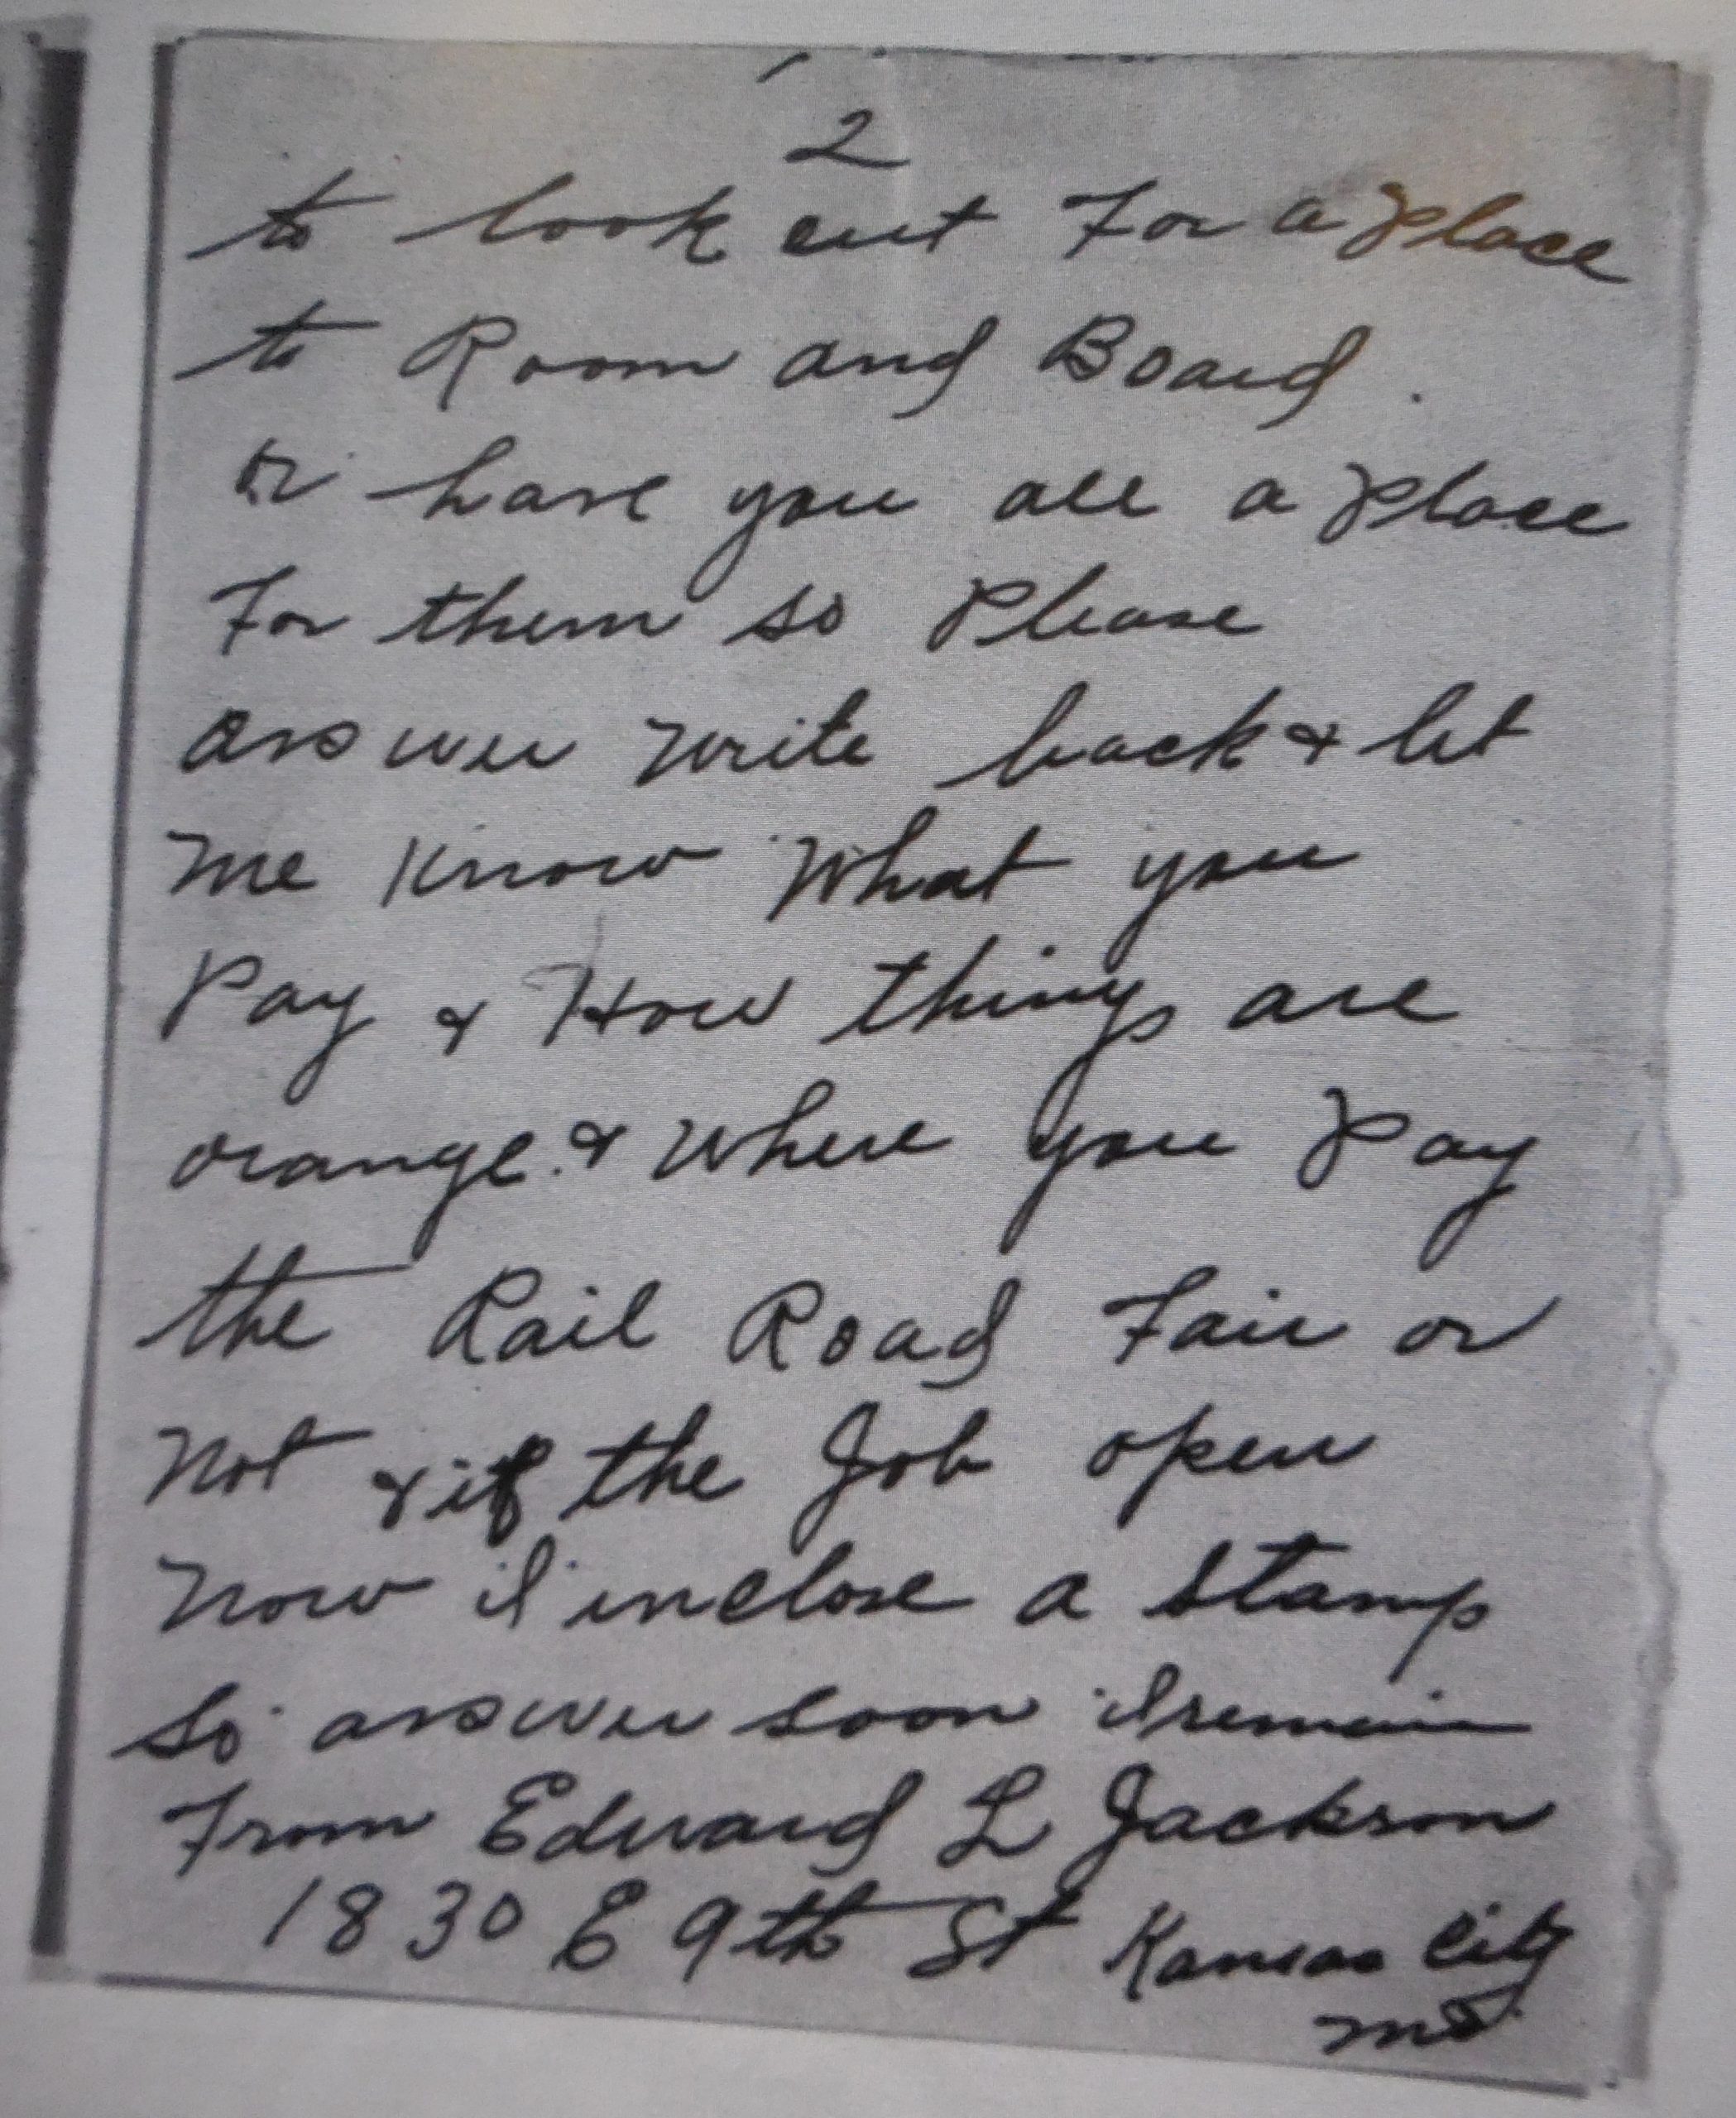 2
to look out For a Place
to Room and Board.
or have you all a Place
For them so Please
answer write back & let
me Know What you
Pay & How things are
orange. & Where you Pay
the Rail Road Fair or
Not & if the Job open
Now i inclose a stamp
So answer soon i remain
From Edward L Jackson
1830 E 9th St Kansas City
Mo